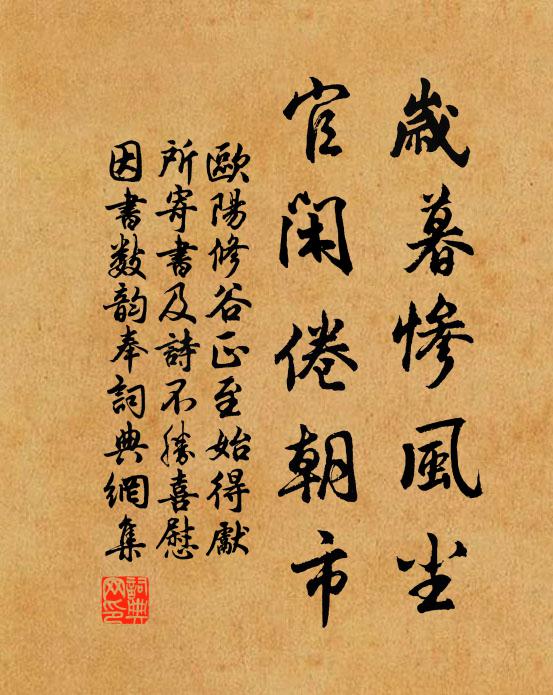 歲暮慘風尘
官閑倦朝市
歐陽修谷正至始得獻
所寄書及詩不勝喜慰
因書數韵奉詞典網集
詞典
网印